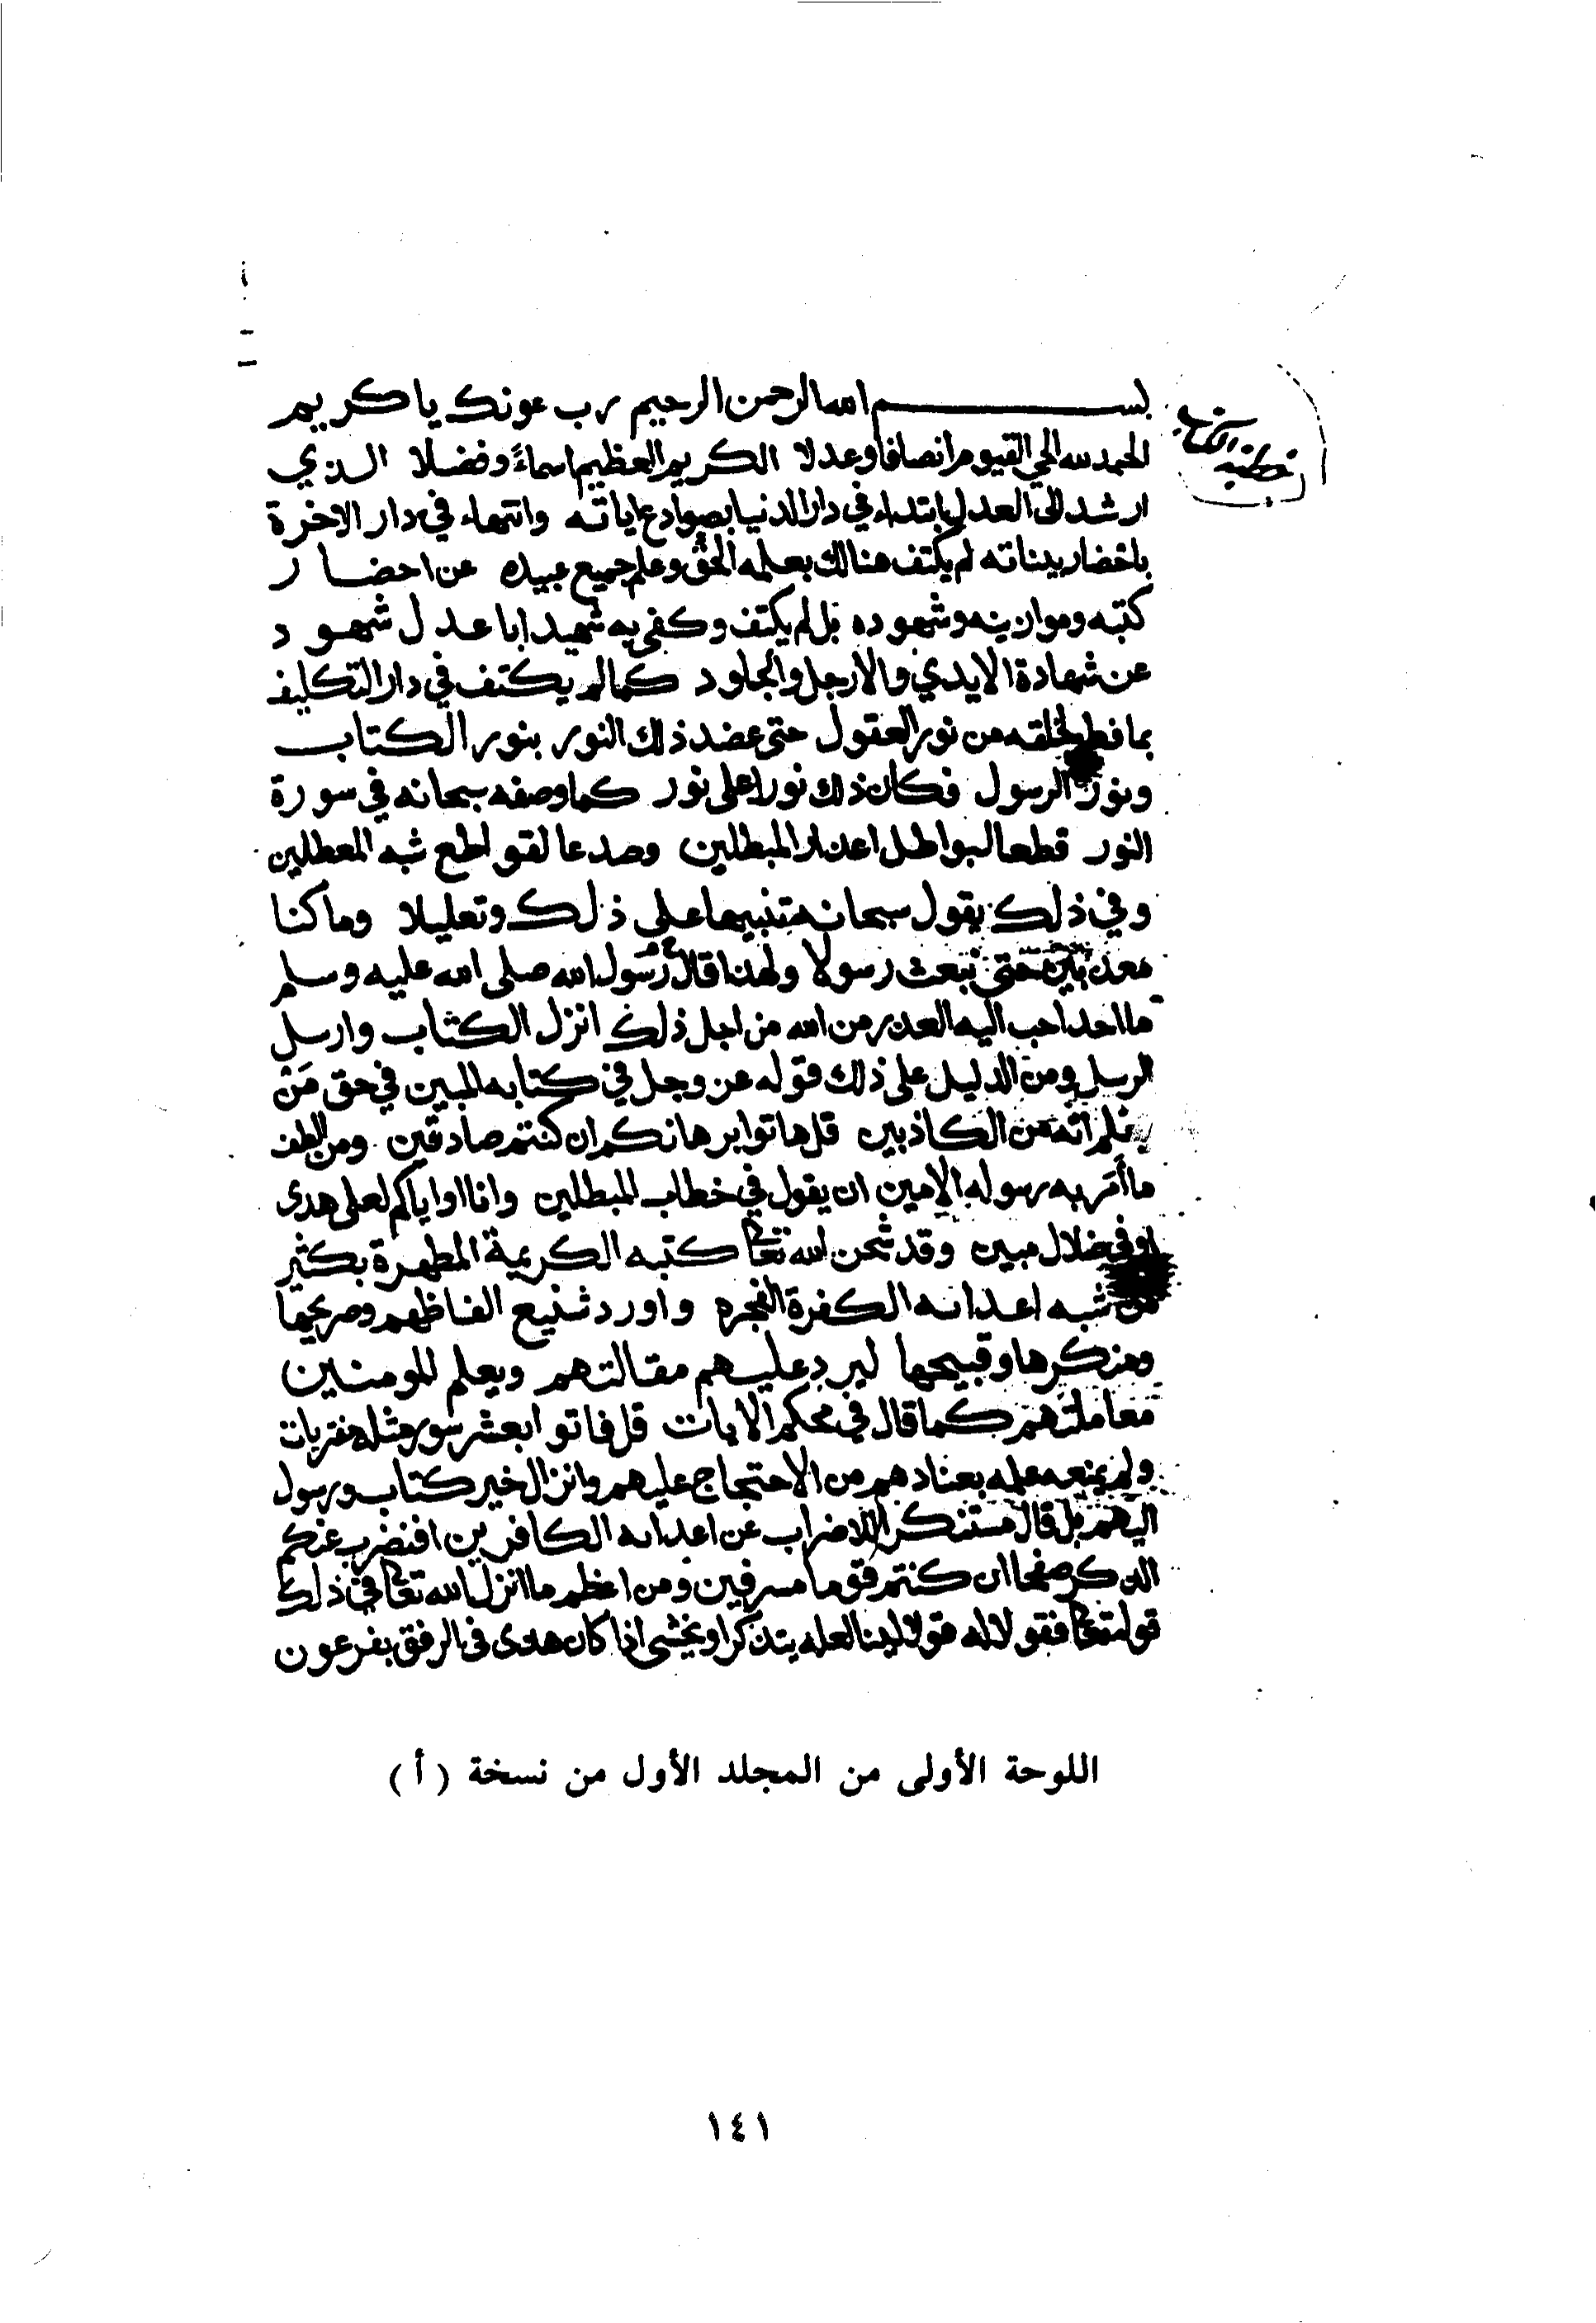 خطبة الكتاب
بسم الله الرحمن الرحيم رب عونك يا كريم
الحمد لله الحي القيوم انصافا وعدلا الكريم العظيم اسماءً وفضلا الذي
ارشد الى العدل بابتداء في دار الدنيا بصوادع اياته وانتهاء في دار الاخرة
باحضار بيناته لم يكتف هنالك بعلمه الحق وعلم جميع عبيده عن احضار
كتبه وموازينه وشهوده بل لم يكتف وكفى به شهيدا باعدل شهود
عن شهادة الايدي والارجل والجلود كما لم يكتف في دار التكليف
بما فطر لخلقه من نور العقول حتى عضد ذلك النور بنور الكتاب
ونور الرسول فكان ذلك نورا على نور كما وصفه سبحانه في سورة
النور قطعا لبواطل اعذار المبطلين وصدعا لقواطع شبه المعطلين
وفي ذلك يقول سبحانه متنبيها على ذلك وتعليلا وما كنا
معذبين حتى نبعث رسولا ولهذا قال رسول الله صلى الله عليه وسلم
ما احد احب اليه العذر من الله من اجل ذلك انزل الكتاب وارسل
الرسل ومن الدليل على ذلك قوله عز وجل في كتابه المبين في حق مَن
يعلم انه من الكاذبين قل هاتوا برهانكم ان كنتم صادقين ومن الطف
ما أمَر به رسوله الامين ان يقول في خطاب المبطلين وانا او اياكم لعلى هدى
او في ضلال مبين وقد شحن الله تعالى كتبه الكريمة المطهرة بكثير
من شبه اعدائه الكفرة الفجره واورد شنيع الفاظهم وصريحها
ومنكرها وقبيحها ليرد عليهم مقالتهم ويعلم المومنين
معاملتهم كما قال في محكم الايات قل فاتوا بعشر سور مثله مفتريات
ولم يمنعه علمه بعنادهم من الاحتجاج عليهم وانزال خير كتاب ورسول
اليهم بل قال مستنكرا للاضراب عن اعدائه الكافرين افنضرب عنكم
الذكر صفحا ان كنتم قوما مسرفين ومن اعظم ما انزل الله تعالى في ذلك
قوله تعالى فقولا له قولا لينا لعله يتذكر او يخشى اذا كان هدى في الرفق بفرعون
اللوحة الأولى من المجلد الأول من نسخة (أ)
١٤١